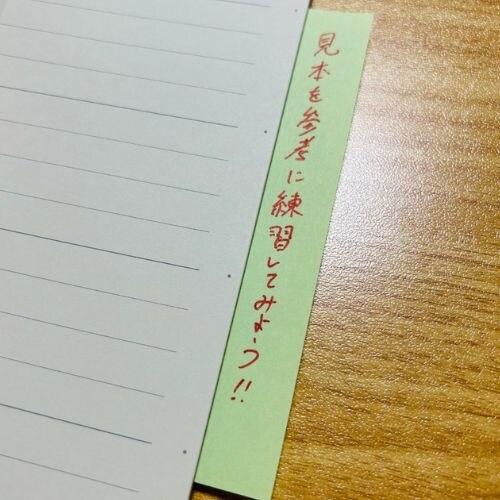 見本を参考に練習してみよう!!